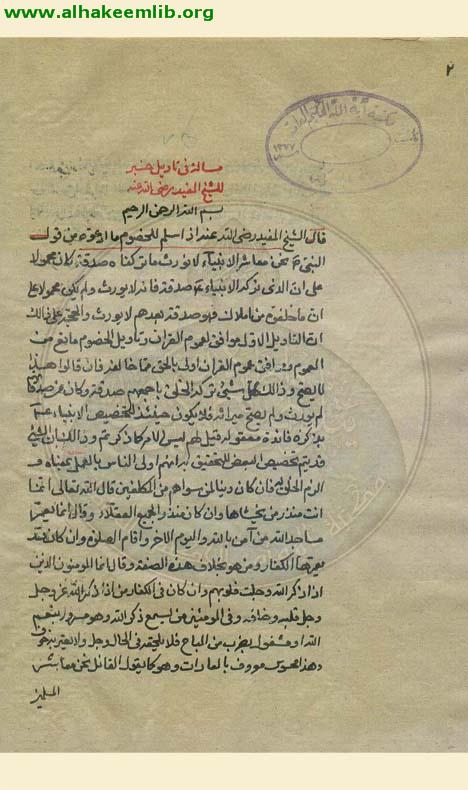 www.alhakeemlib.org
٢
مكتبة آية الله الحكيم العامة
١٣٧٧
رسالة في تاويل خبر
للشيخ المفيد رضي الله عنه
بسم الله الرحمن الرحيم
قال الشيخ المفيد رضي الله عنه اذا سلم للخصوم ما ادعوه من قول
النبي ع نحن معاشر الانبياء لا نورث ما تركناه صدقة كان محمولا
على ان الذي تركه الانبياء ع صدقة فانه لا يورث ولم يكن محمولا على
ان ما خلفوه من املاك فهو صدقة بعدهم لا يورث والحجة على ذلك
ان التاويل الاول موافق لعموم القران وتاويل الخصوم مانع من
العموم وموافق عموم القران اولى بالحق مما خالفه فان قالوا هذا
لا يصح وذلك ان كل شئ تركه الخلق باجمعهم صدقة وكان من صدقاتهم
لم يورث ولم يصح ميراثه فلا يكون حينئذ لتخصيص الانبياء عليهم
بذكره فائدة معقولة قيل لهم ليس الامر كما ذكرتم وذلك ان الشئ
قد يتم تخصيص البعض للتحقيق به انهم اولى الناس بالعمل بمعناه و
الزم الخلق له فان كان دينا لمن سواهم من المكلفين قال الله تعالى انما
انت منذر من يخشاها وان كان منذرا لجميع العقلاء وقال انما يعمر
مساجد الله من آمن بالله واليوم الاخر واقام الصلوة وان كان قد
يعمرها الكفار ومن هو بخلاف هذه الصفة وقال انما المومنون الذين
اذا ذكر الله وجلت قلوبهم وان كان في الكفار من اذا ذكر الله عز وجل
وجل قلبه وخاف وفي المومنين من يسمع ذكر الله وهو مسرور بنعم
الله او مشغول بضرب من المباح فلا يلحقه في الحال وجل ولا يعتريه خوف
وهذا محسوس معروف بالعادات وهو كما يقول القائل نحن معاشر
المسلمين